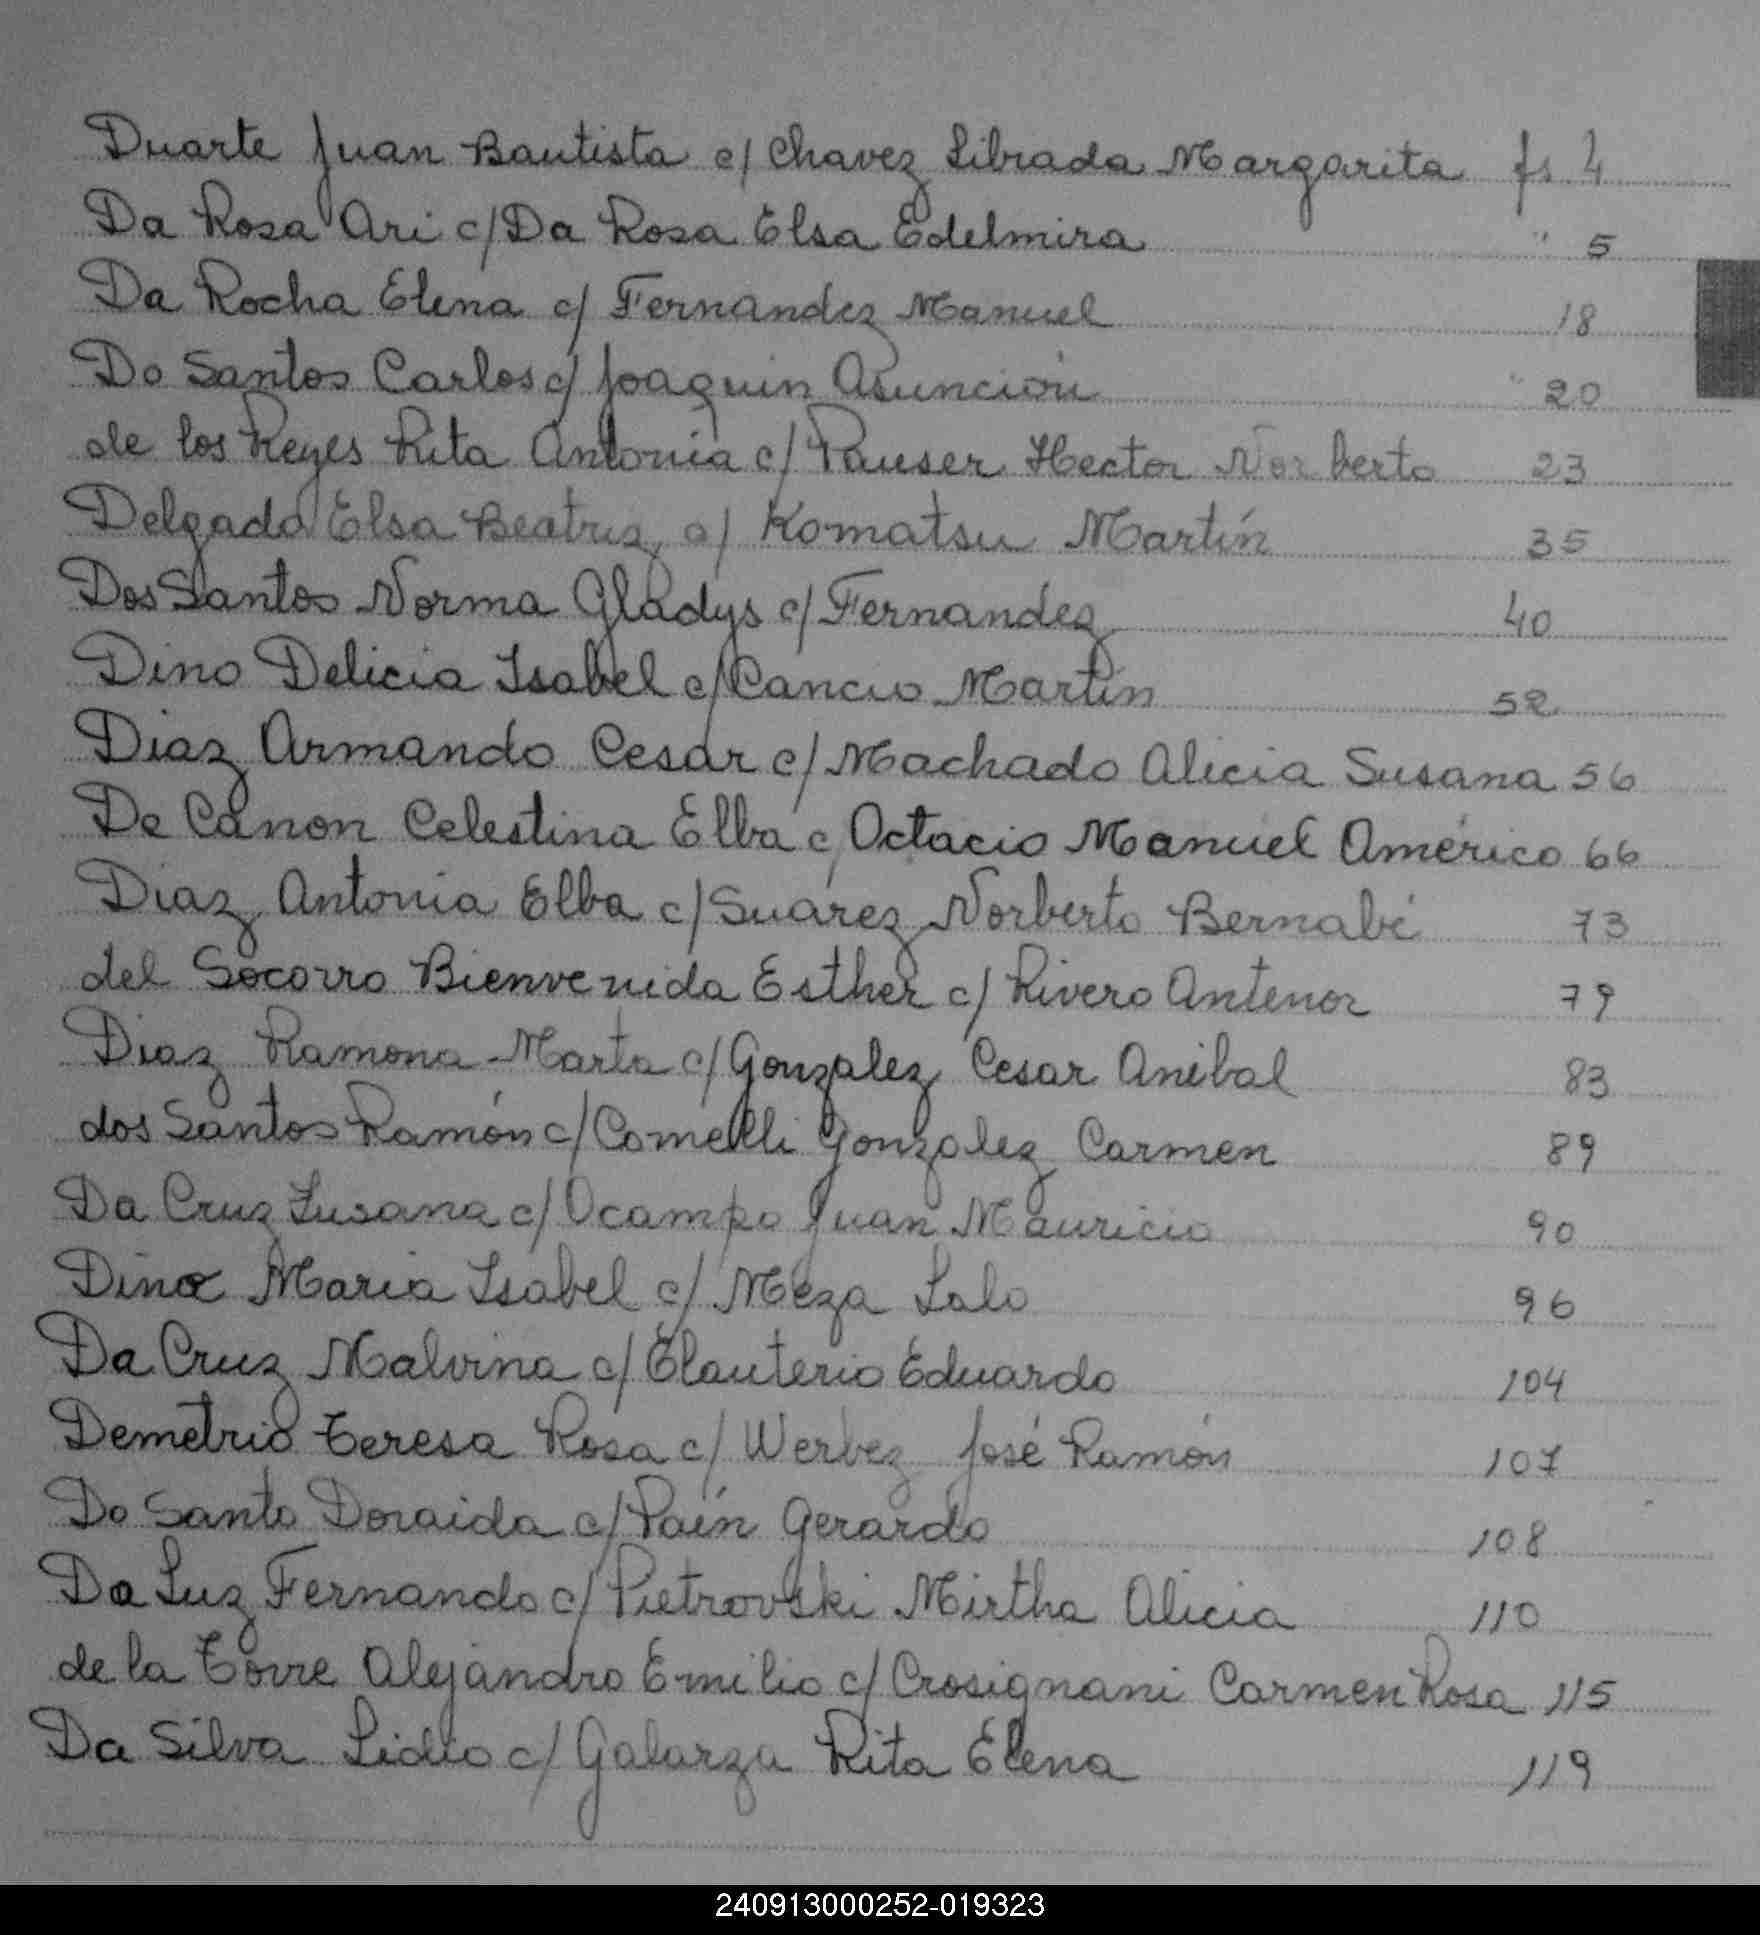 Duarte Juan Bautista c/ Chavez Librada Margarita fs 4
Da Rosa Ari c/ Da Rosa Elsa Edelmira " 5
Da Rocha Elena c/ Fernandez Manuel 18
Do Santos Carlos c/ Joaquin Asunción " 20
de los Reyes Rita Antonia c/ Pauser Hector Norberto 23
Delgado Elsa Beatriz c/ Komatsu Martín 35
Dos Santos Norma Gladys c/ Fernandez 40
Dino Delicia Isabel c/ Cancio Martín 52
Diaz Armando Cesar c/ Machado Alicia Susana 56
De Canon Celestina Elba c/ Octacio Manuel Américo 66
Diaz Antonia Elba c/ Suárez Norberto Bernabé 73
del Socorro Bienvenida Esther c/ Rivero Antenor 79
Diaz Ramona Marta c/ Gonzalez Cesar Anibal 83
dos Santos Ramón c/ Comelli Gonzalez Carmen 89
Da Cruz Susana c/ Ocampo Juan Mauricio 90
Dino Maria Isabel c/ Meza Lalo 96
Da Cruz Malvina c/ Elauterio Eduardo 104
Demetrio Teresa Rosa c/ Werbez José Ramón 107
Do Santo Doraida c/ Paín Gerardo 108
Da Luz Fernando c/ Pietrovski Mirtha Alicia 110
de la Torre Alejandro Emilio c/ Crosignani Carmen Rosa 115
Da Silva Lidio c/ Galarza Rita Elena 119
240913000252-019323